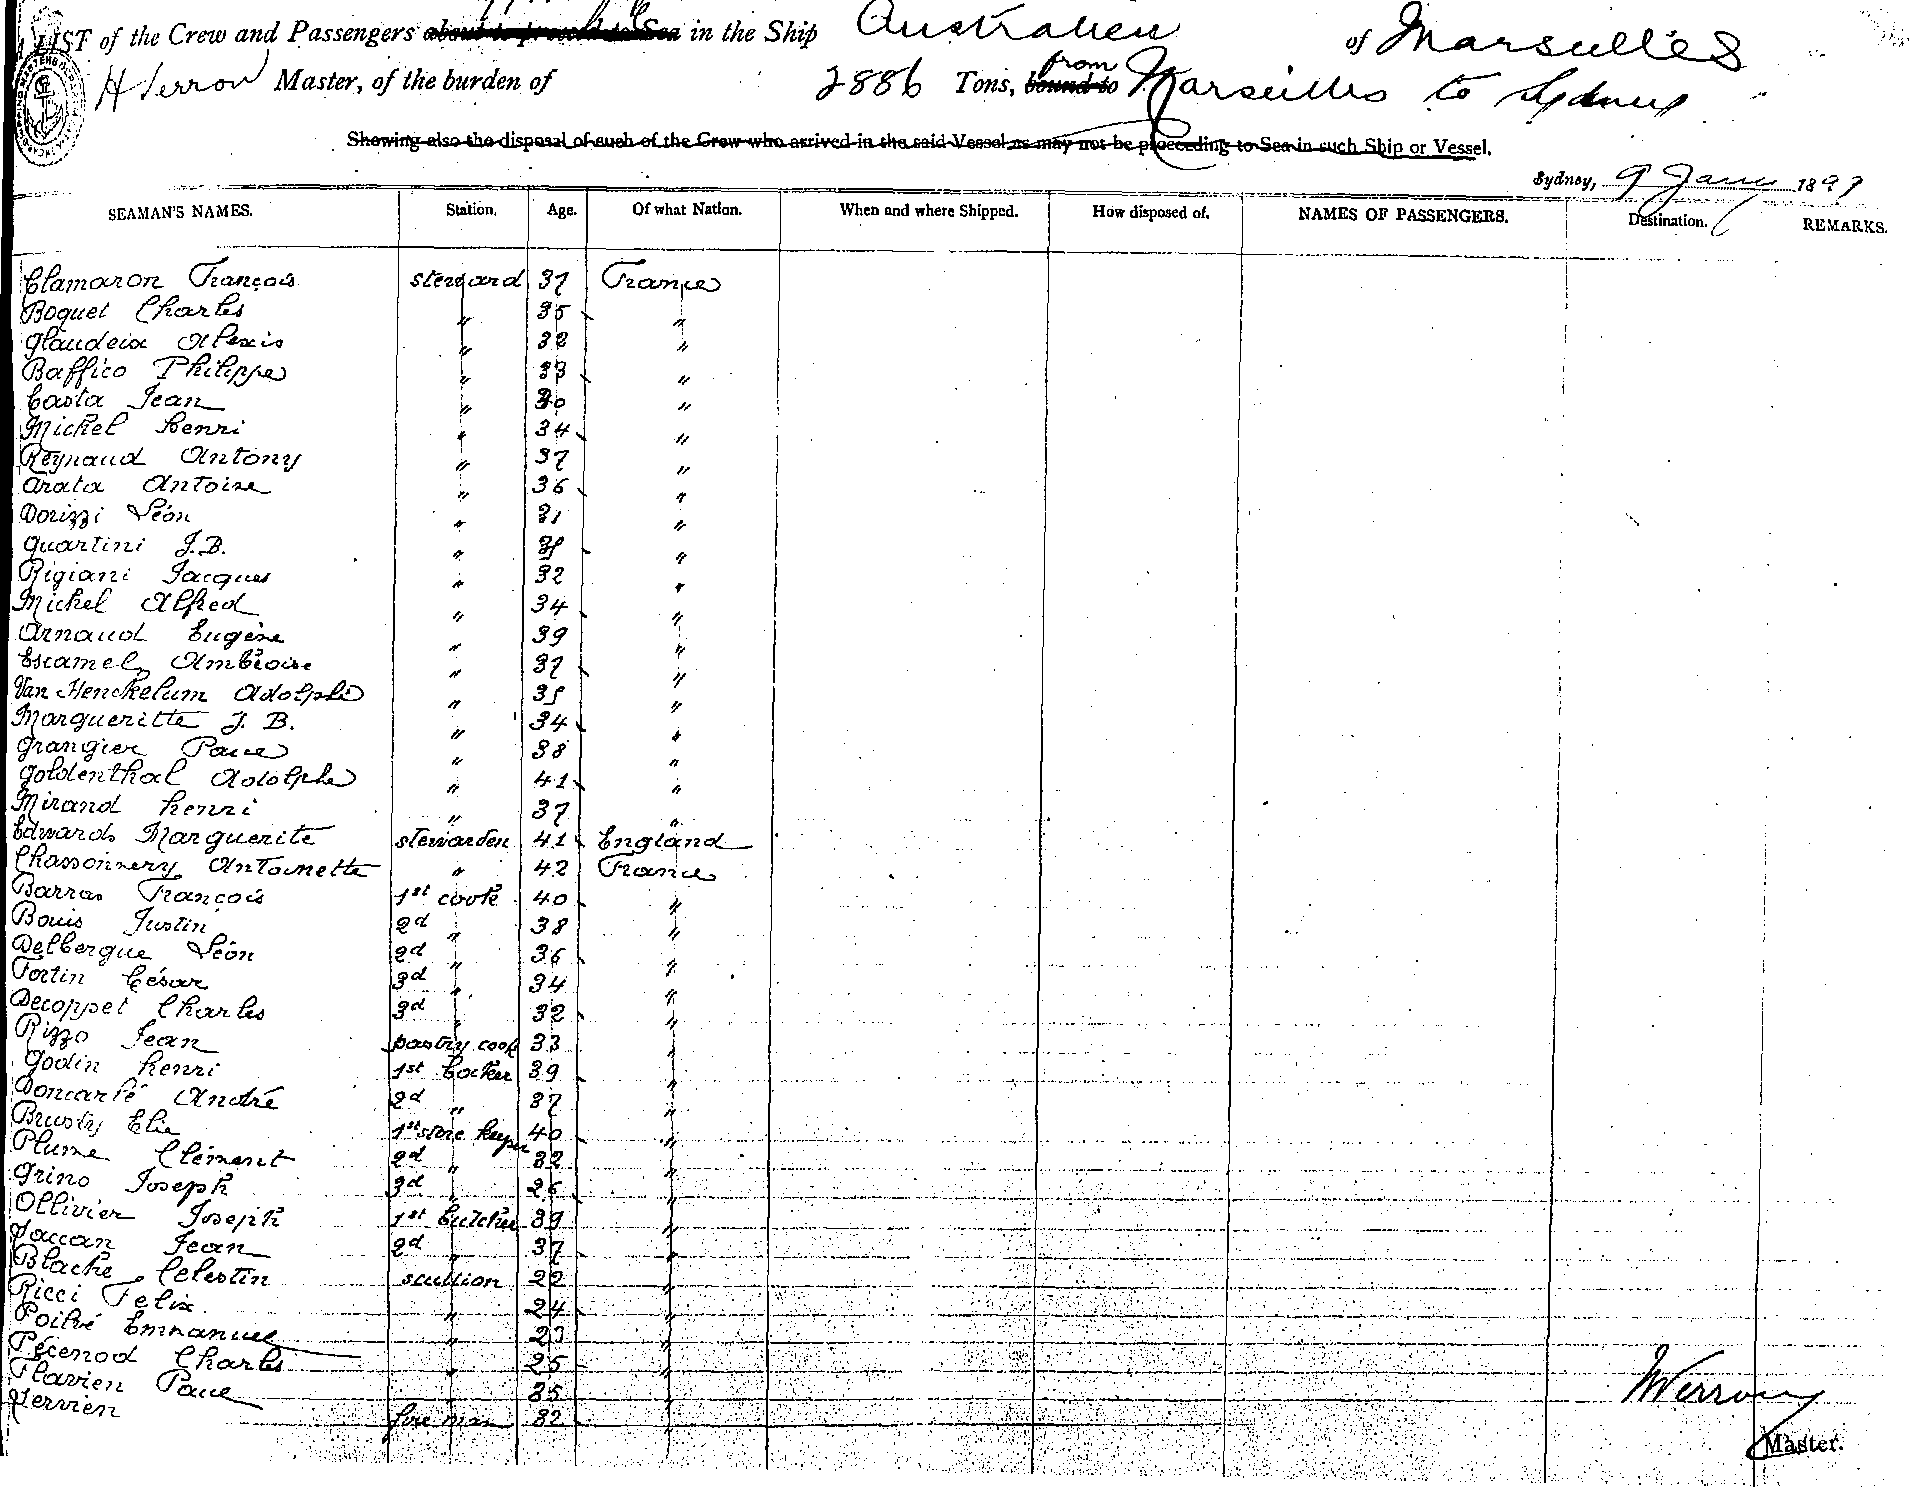 LIST of the Crew and Passengers about to proceed to Sea in the Ship Australien of Marseilles
Master, of the burden of 2886 Tons, bound to from Marseilles to Sydney
Showing also the disposal of such of the Crew who arrived in the said Vessel as may not be proceeding to Sea in such Ship or Vessel.
Sydney, 9 Jany 1897
SEAMAN'S NAMES. Station. Age. Of what Nation. When and where Shipped. How disposed of. NAMES OF PASSENGERS. Destination. REMARKS.
Clamaron François steward 37 France
Boquet Charles " 35 "
Glaudeix Alexis " 32 "
Baffico Philippe " 33 "
Casta Jean " 30 "
Michel Henri " 34 "
Reynaud Antony " 37 "
Arata Antoine " 36 "
Dorizzi Léon " 31 "
Quartini J.B. " "
Rigiani Jacques " 32 "
Michel Alfred " 34 "
Arnaud Eugène " 39 "
Escamel Ambroise " 37 "
Van Henckelum Adolphe " 35 "
Margueritte J. B. " 34 "
Grangier Paul " 38 "
Goldenthal Adolphe " 41 "
Mirand henri " 37 "
Edwards Marguerite stewarden 41 England
Chassonnery Antoinette " 42 France
Barras François 1st cook 40 "
Bouis Justin 2d " 38 "
Delbergue Léon 2d " 36 "
Fortin César 3d " 34 "
Decoppet Charles 3d " 32 "
Rizzo Jean pastry cook 33 "
Godin henri 1st backer 39 "
Domarlé André 2d " 37 "
Brusty Elie 1st store keeper 40 "
Plume Clément 2d " 32 "
Grino Joseph 3d " 26 "
Ollivier Joseph 1st butcher 39 "
Jaccan Jean 2d " 37 "
Blache Celestin scullion 22 "
Ricci Felix " 24 "
Poilvé Emmanuel " 23 "
Pécenod Charles " 25 "
Flavien Paul 35 "
fore man 32 "
Master.